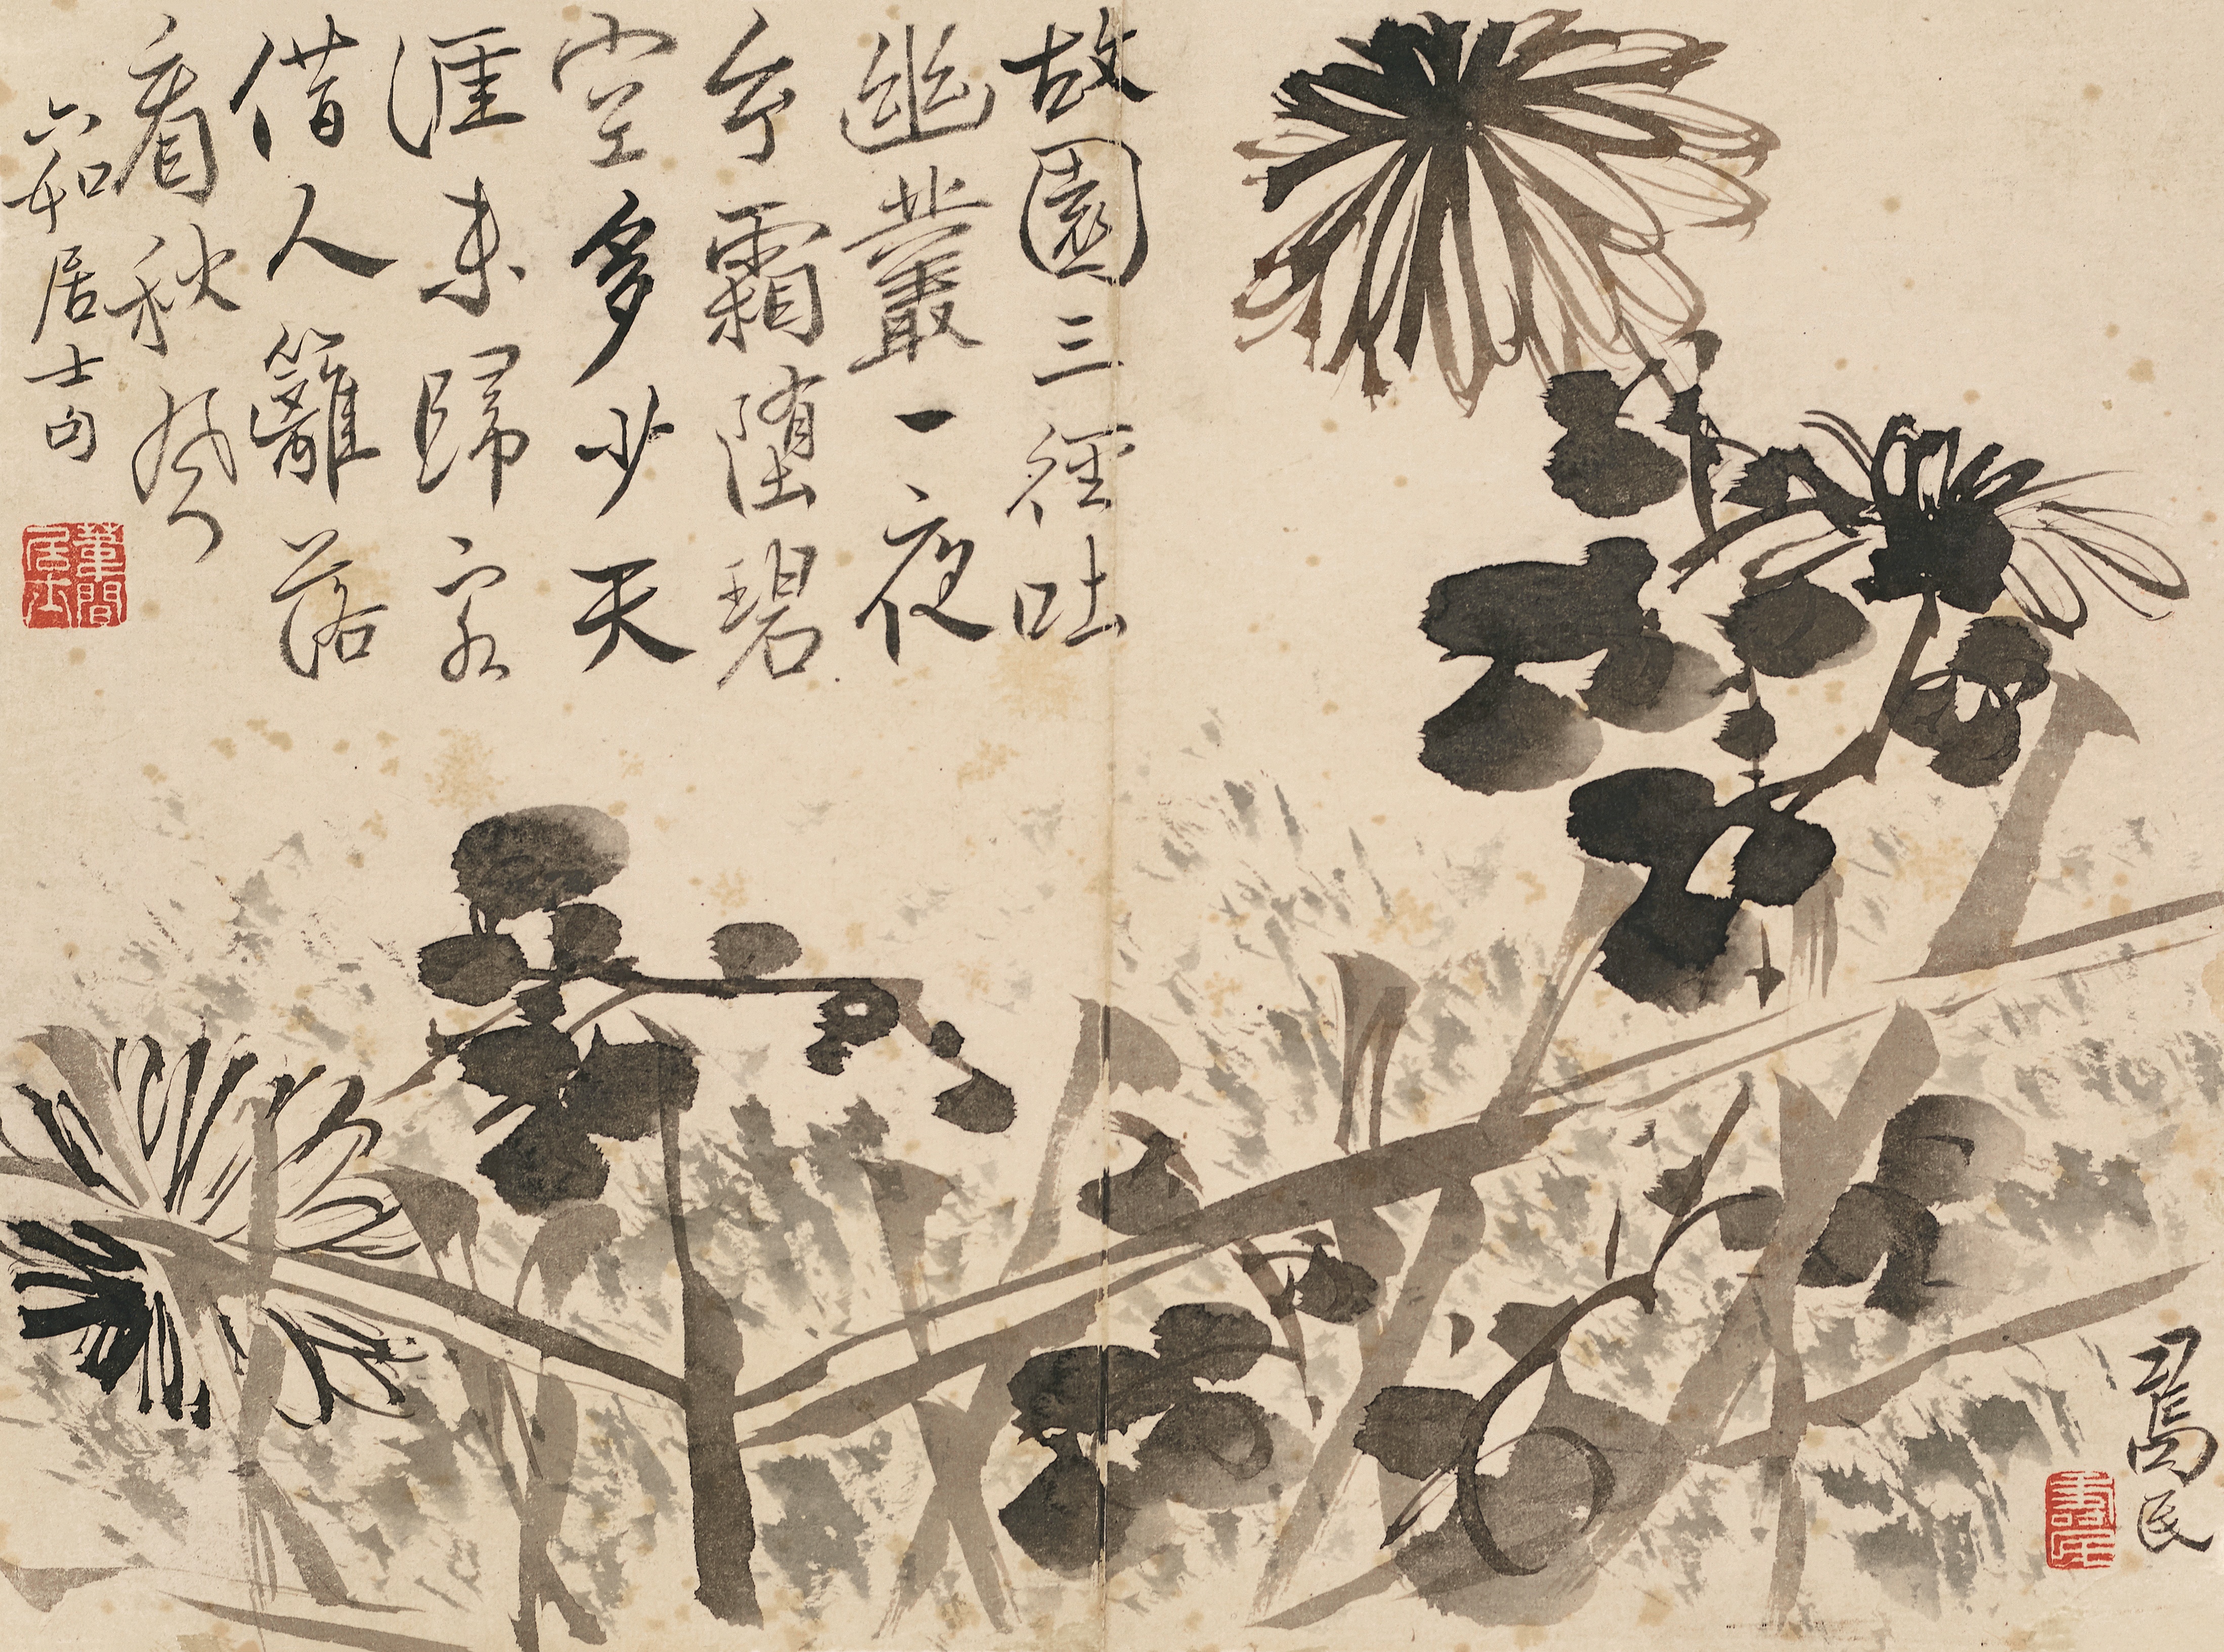 故園三徑吐
幽叢一夜
玄霜墮碧
空多少天
涯未歸客
借人籬落
看秋風
六如居士句
葦間居士
壽民
壽民